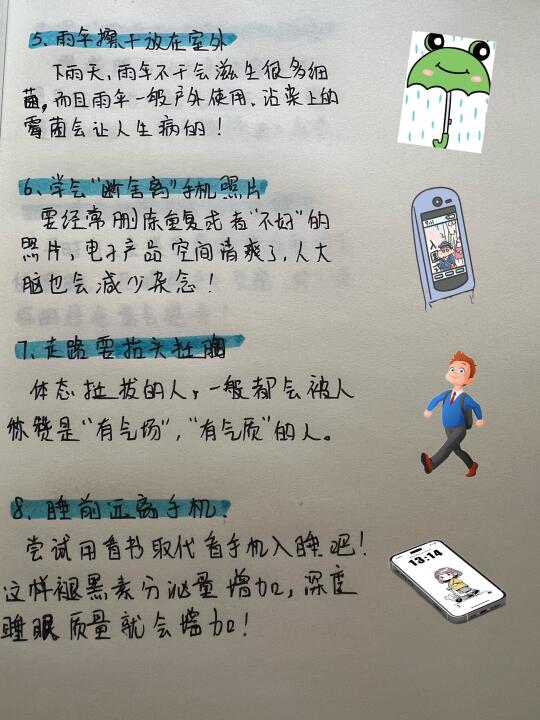 5、雨伞擦干放在室外
下雨天,雨伞不干会滋生很多细
菌,而且雨伞一般户外使用,沾染上的
霉菌会让人生病的!
6、学会“断舍离”手机照片
要经常删除重复或者“不好”的
照片,电子产品空间清爽了,人大
脑也会减少杂念!
7、走路要抬头挺胸
体态挺拔的人,一般都会被人
称赞是“有气场”,“有气质”的人。
8、睡前远离手机
尝试用看书取代看手机入睡吧!
这样褪黑素分泌量增加,深度
睡眠质量就会增加!
13:14